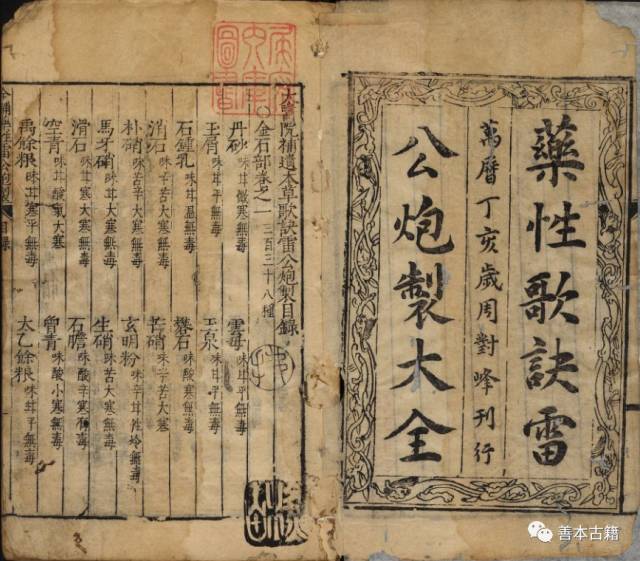 藥性歌訣雷
萬曆丁亥歲周對峰刊行
公炮製大全
太醫院補遺本草歌訣雷公炮製目錄
金石部卷之一 三百三十八種
丹砂 味甘微寒無毒 雲母 味甘平無毒
玉屑 味甘平無毒 玉泉 味甘平無毒
石鍾乳 味甘溫無毒 礬石 味酸寒無毒
消石 味苦大寒無毒 芒硝 味辛苦大寒
朴硝 味苦辛大寒無毒 玄明粉 味辛甘性冷無毒
馬牙硝 味甘大寒無毒 生硝 味苦大寒無毒
滑石 味甘寒大寒無毒 石膽 味酸辛寒有毒
空青 味甘酸氣大寒 曾青 味酸小寒無毒
禹餘粮 味甘寒平無毒 太乙餘粮 味甘平無毒
目錄
善本古籍